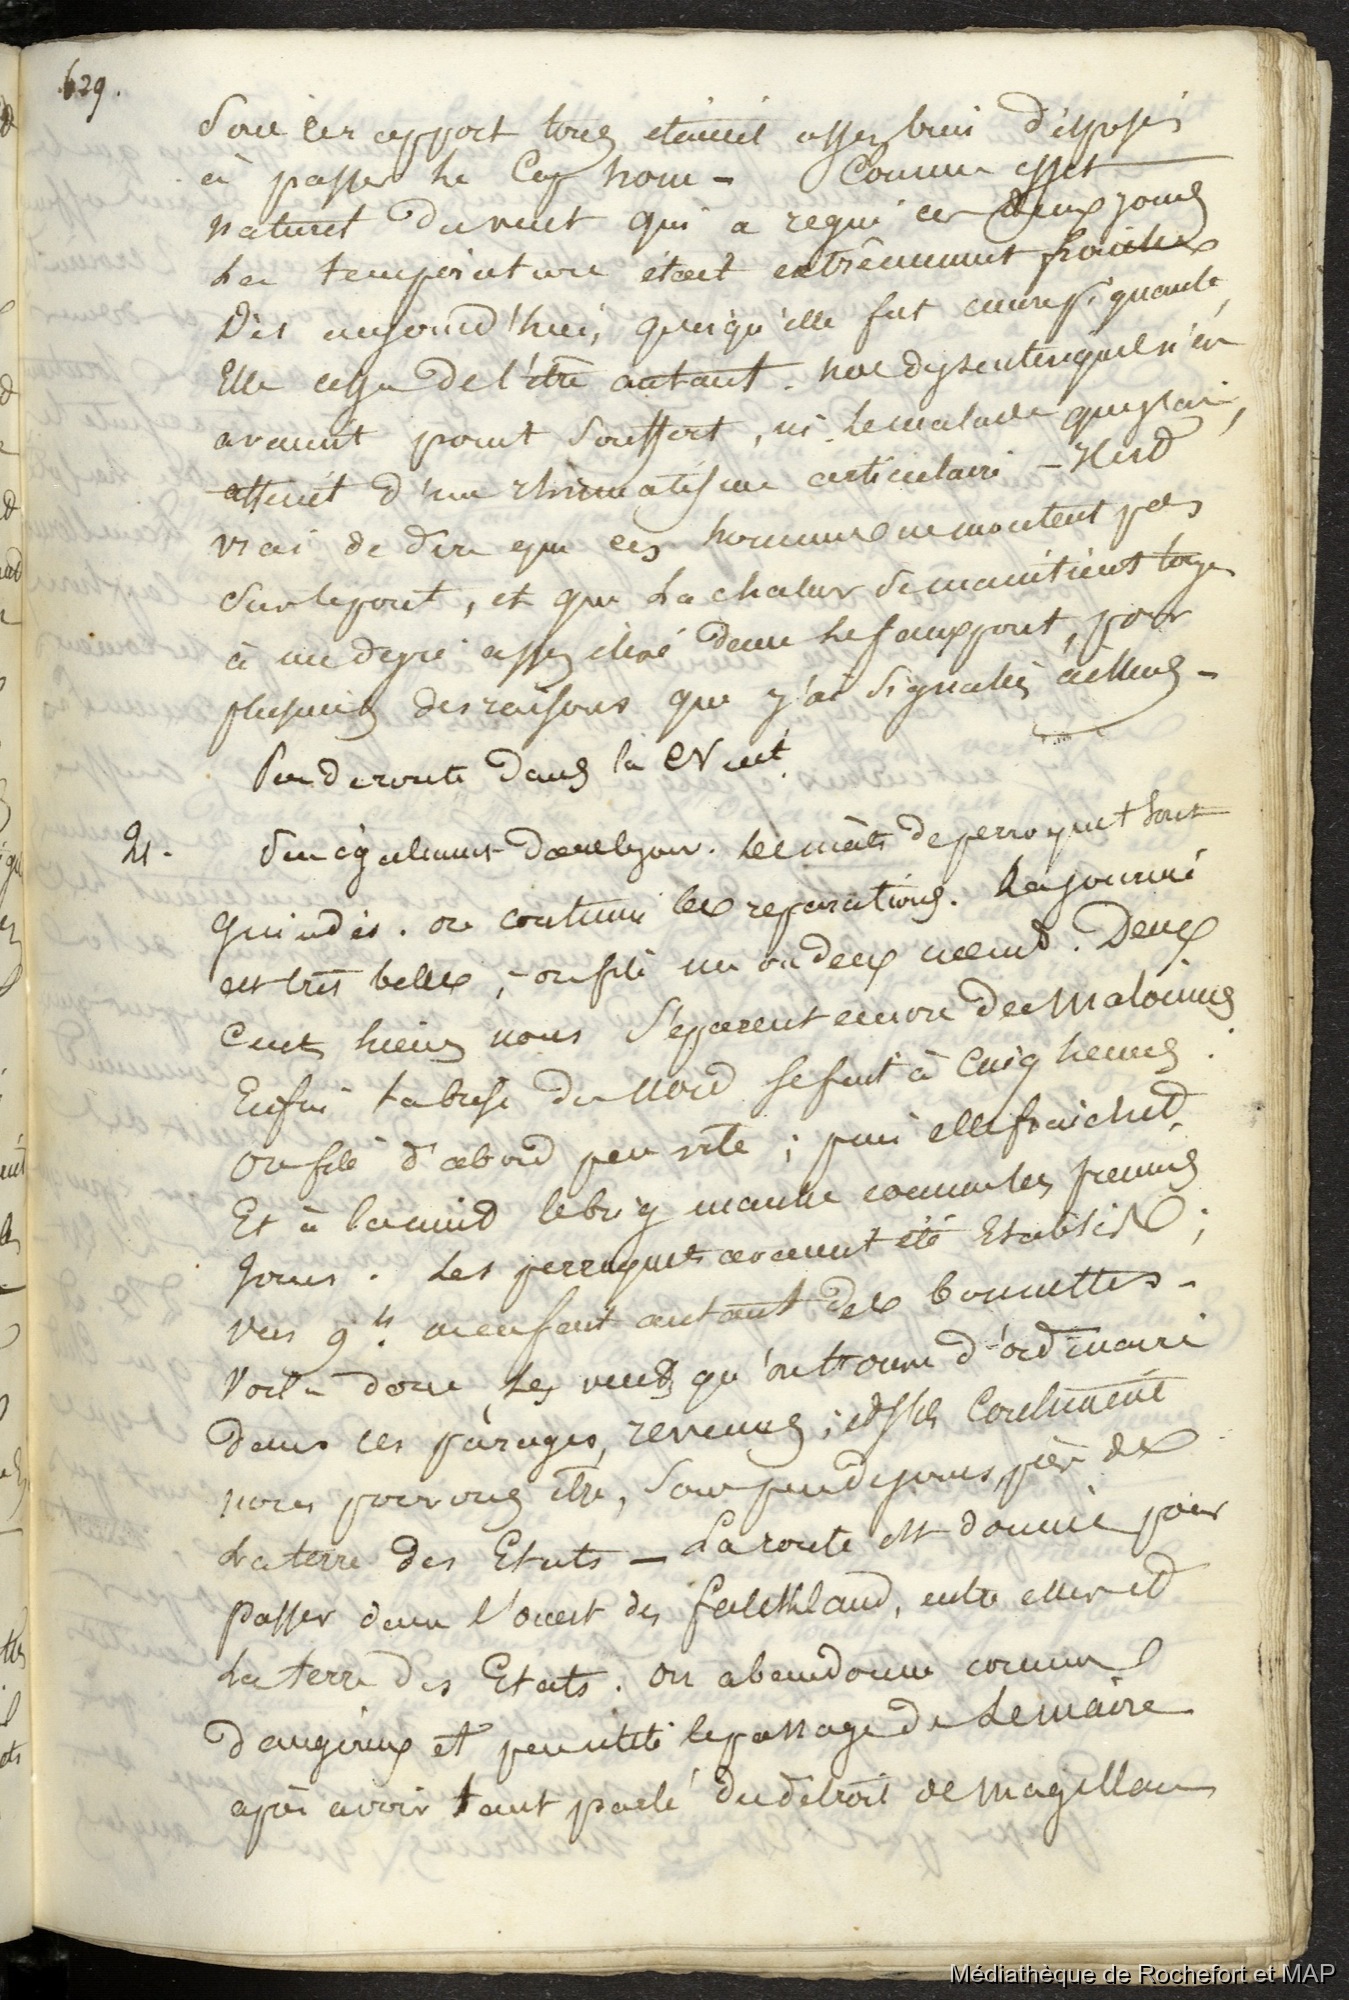 629.
Sous ces rapport tous etaient assez bien disposés
à passer le Cap horn - Comme effet
naturel du vent qui a regné ces deux jours
La temperature était extrêmement fraiche
Dès aujourd'hui, quoiqu'elle fut encore piquante,
Elle cessa de l'être autant. nos dysenteriques n'en
avaient point souffert, ni le malade qui etait
atteint d'un rhumatisme articulaire - Il est
vrai de dire que ces hommes ne montent pas
sur le pont, et que La chaleur se maintient toujs
à un degré assez élevé dans le faux pont, pour
plusieurs des raisons que j'ai signalés ailleurs -
Peu de route dans la Nuit.
21. Vu également des baleines. Les mâts de perroquet sont
guindés. on continue les reparations. La journée
est très belle ; - on file un ou deux nœuds. Deux
Cents lieues nous séparent encore des Malouines.
Enfin la brise du Nord se fait à Cinq heures.
On file d'abord peu vite ; puis elle fraichit,
Et à la nuit le brig marche comme les premiers
Jours. Les perroquets avaient été Etablis ;
Vers 9h. on en fait autant des bonnettes -
Voilà donc les vents qu'on trouve d'ordinaire
dans ces parages, revenus ; et s'ils Continuent
nous pourrons être, sous peu de jours, près de
La terre des Etats - La route est donnée pour
passer dans l'ouest des falckland, entre elles et
La terre des Etats. On abandonne comme
dangereux et peu utile le passage de Lemaire
après avoir tant parlé du detroit de Magellan
Médiathèque de Rochefort et MAP